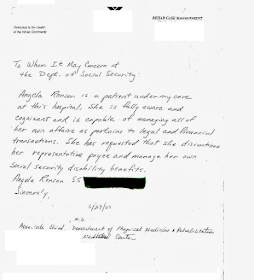 REHAB CASE MANAGEMENT
To Whom It May Concern at
the Dept. of Social Security:
Angela Ronson is a patient under my care
at this hospital. She is fully aware and
cognisant and is capable of managing all of
her own affairs as pertains to legal and financial
transactions. She has requested that she discontinue
her representative payee and manage her own
Social security disability benefits.
Angela Ronson SS
Sincerely,
M.D.
Associate Chief, Department of Physical Medicine & Rehabilitation
Medical Center